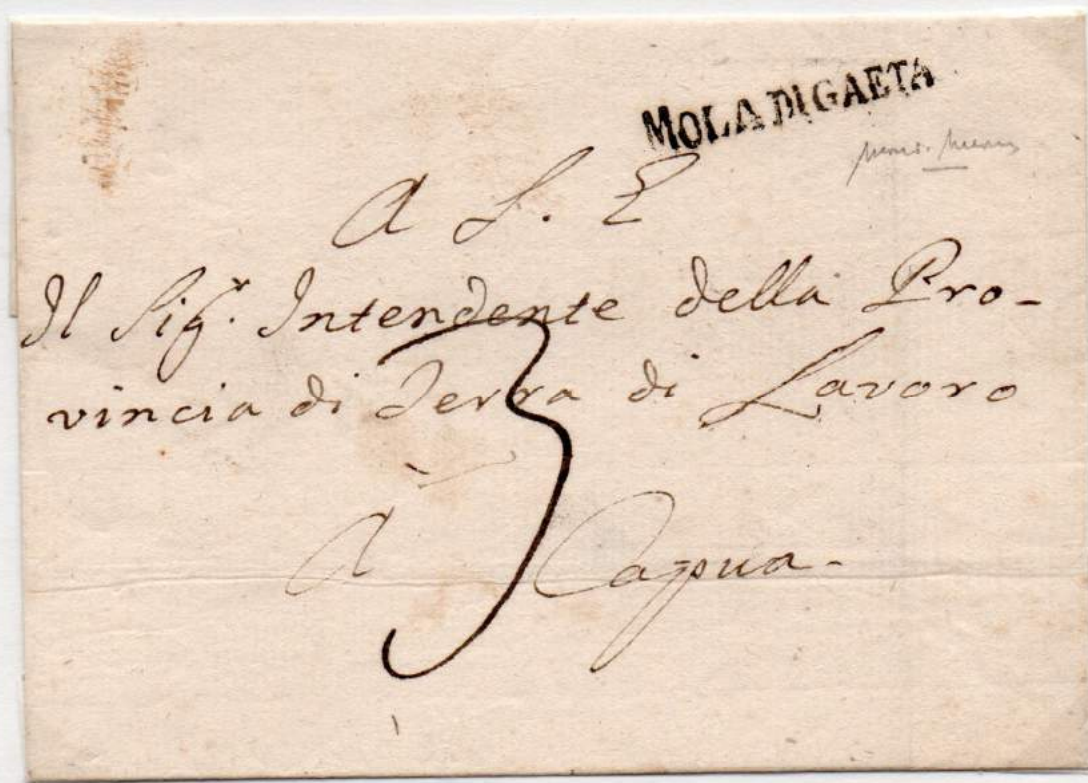 MOLA DI GAETA
A S. E
Il Sig.r Intendente della Pro-
vincia di Terra di Lavoro
3
A Capua.